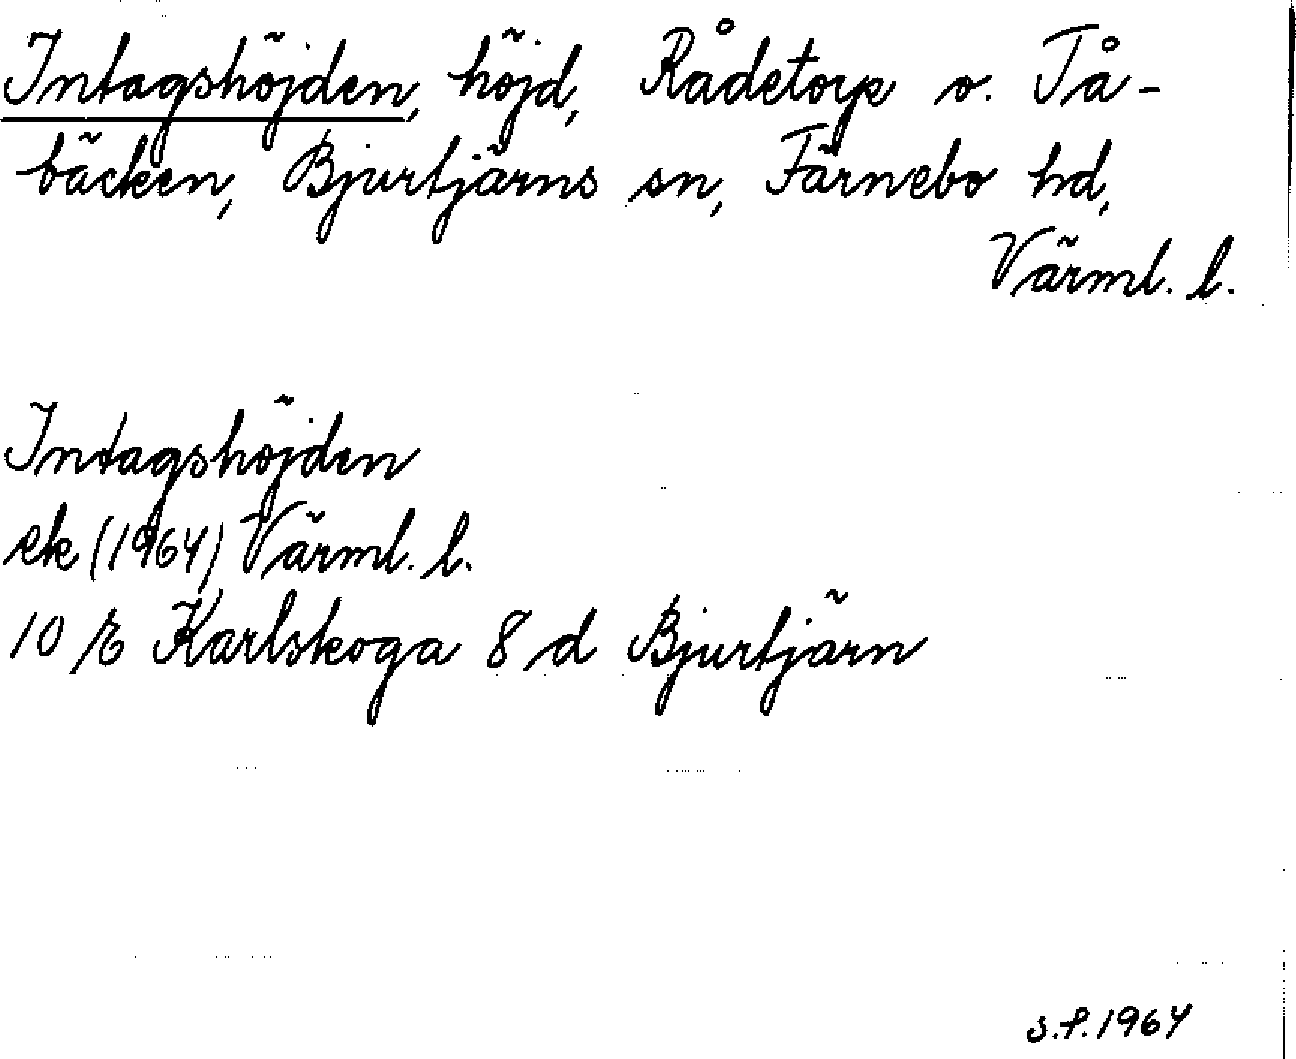 Intagshöjden, höjd, Rådetorp o. Tå-
bäcken, Bjurtjärns sn, Färnebo hd,
Värml. l.
Intagshöjden
ek (1964) Värml. l.
10 E Karlskoga 8 d Bjurtjärn
s.f. 1964